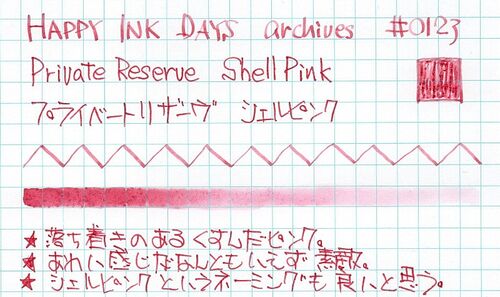 HAPPY INK DAYS archives #0123
Private Reserve Shell Pink
プライベートリザーヴ シェルピンク
★落ち着きのあるくすんだピンク。
★あわい感じがなんともいえず素敵。
★シェルピンクというネーミングも良いと思う。